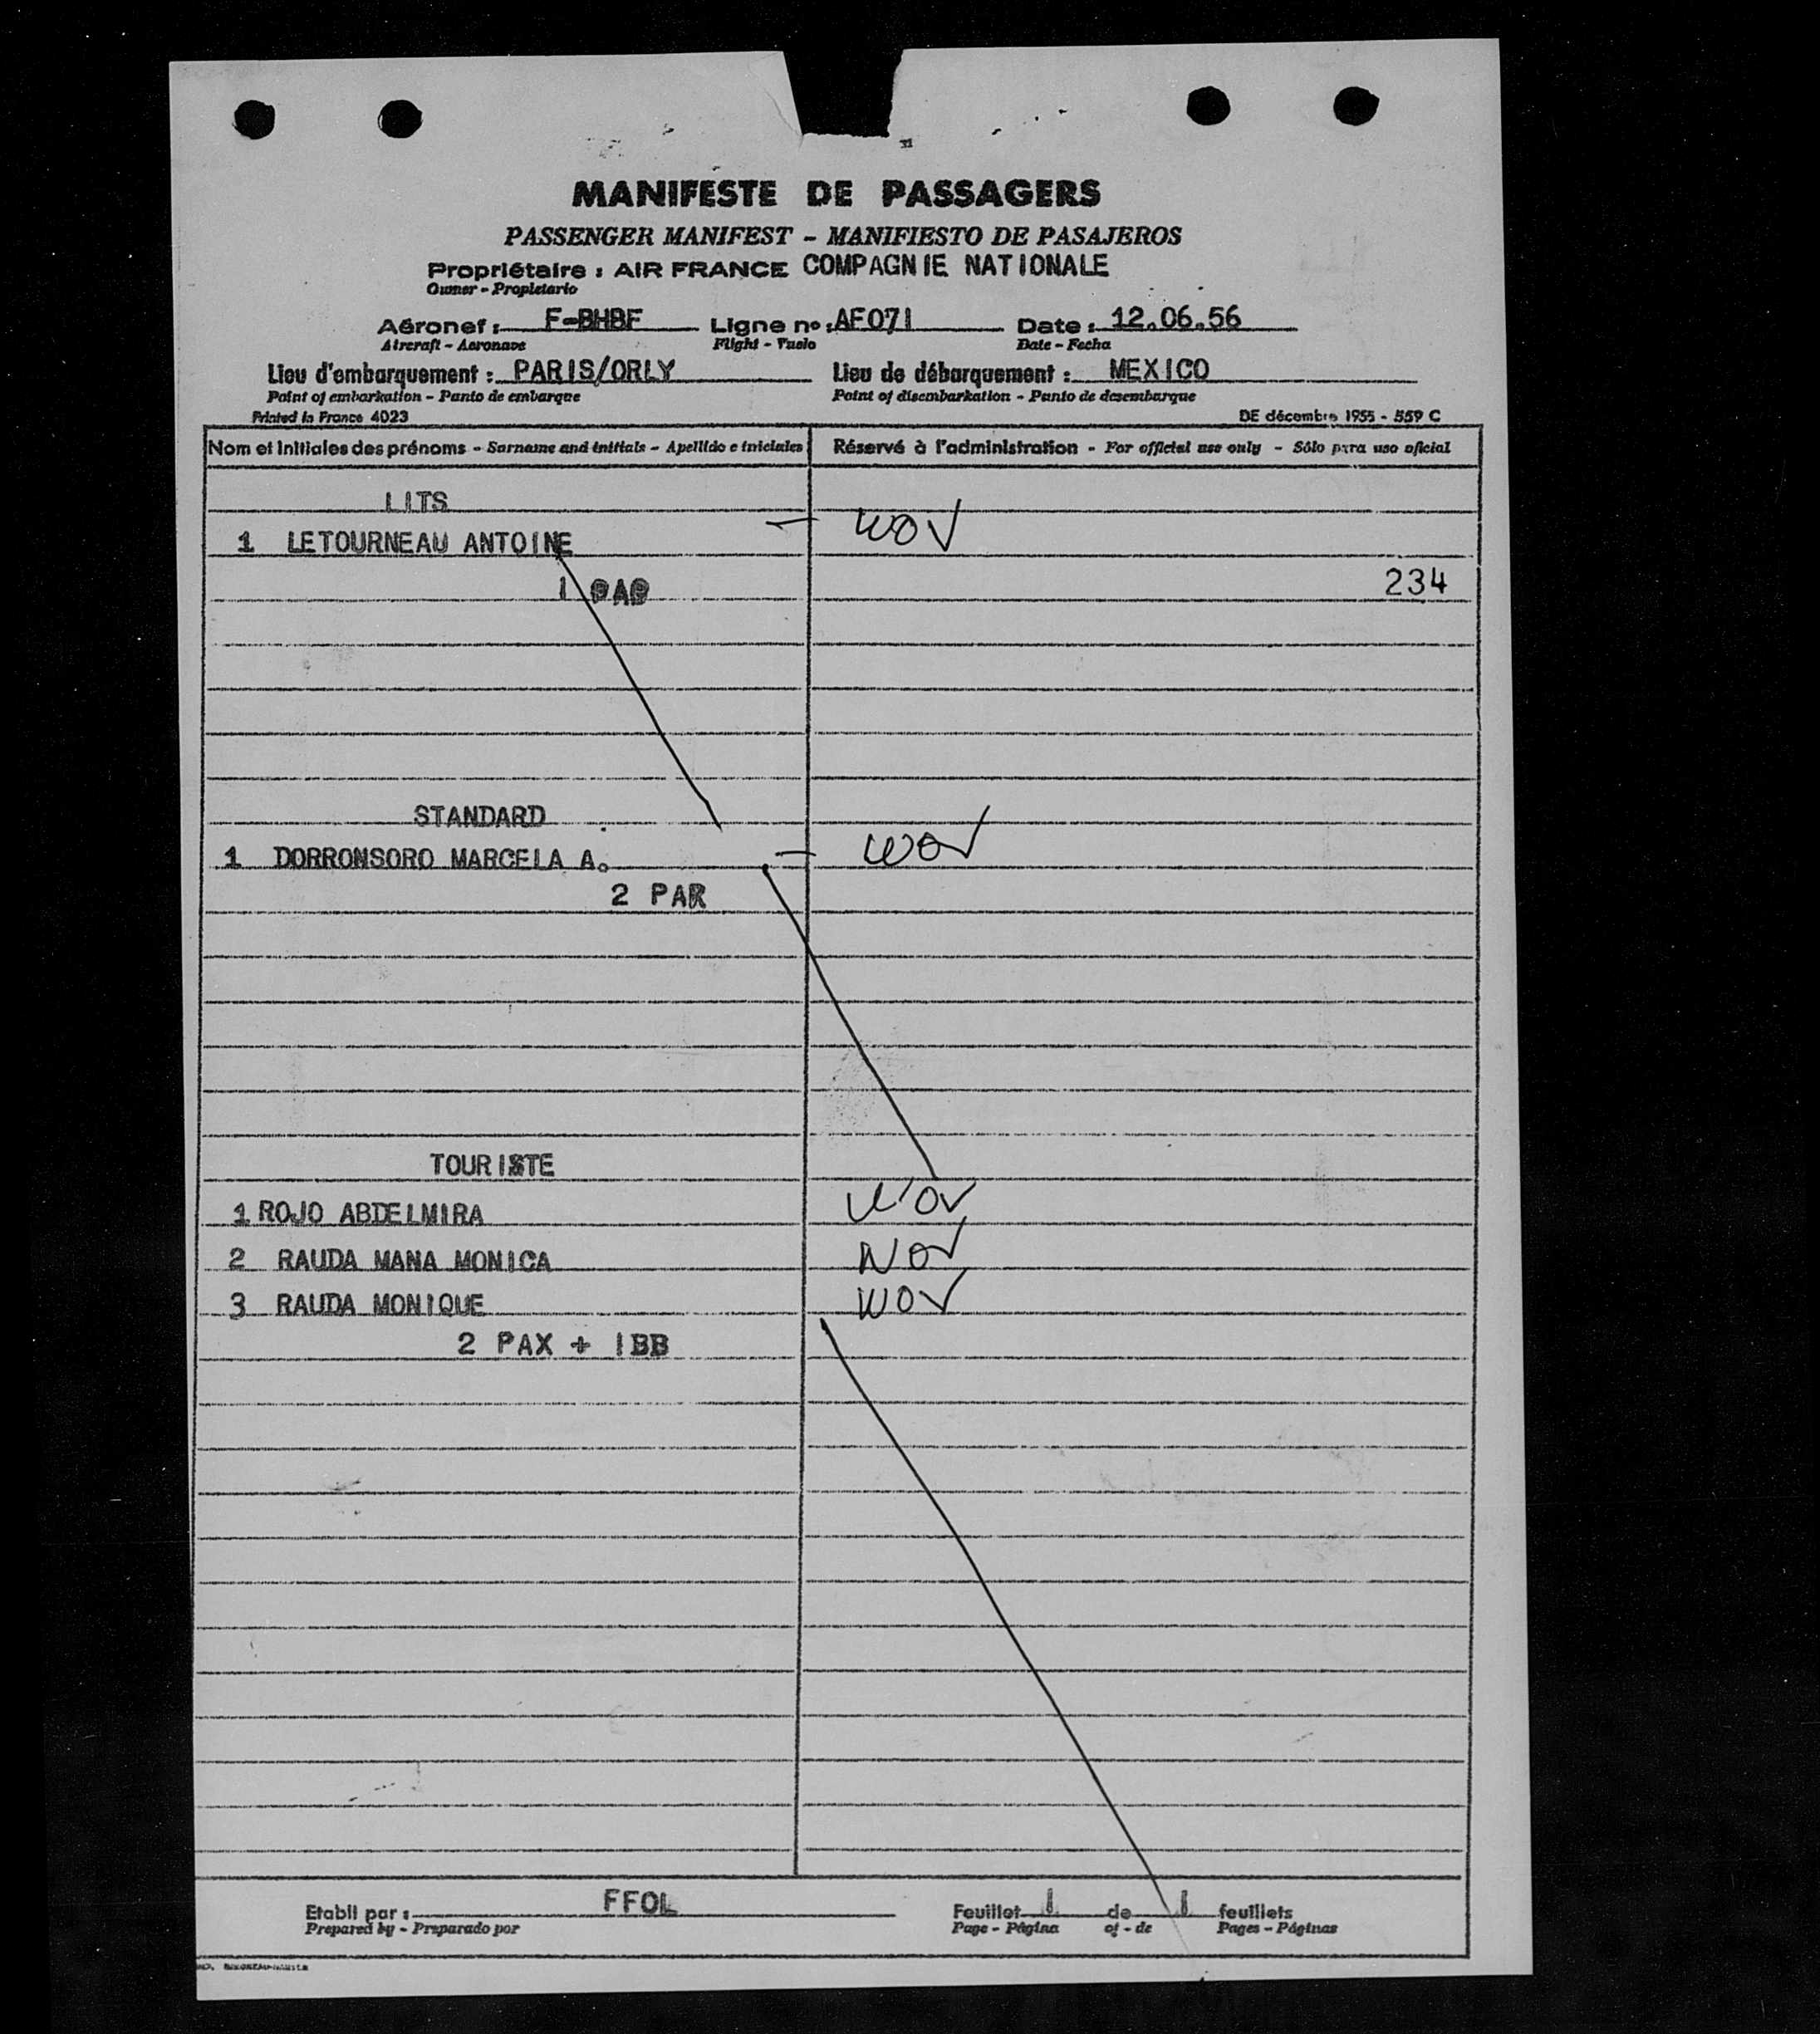 MANIFESTE DE PASSAGERS
PASSENGER MANIFEST - MANIFIESTO DE PASAJEROS
Propriétaire : AIR FRANCE COMPAGNIE NATIONALE
Owner - Propietario
Aéronef : F-BHBF Ligne no : AF071 Date : 12.06.56
Aircraft - Aeronave Flight - Vuelo Date - Fecha
Lieu d'embarquement : PARIS/ORLY Lieu de débarquement : MEXICO
Point of embarkation - Punto de embarque Point of disembarkation - Punto de desembarque
Printed in France 4023 DE décembre 1955 - 559 C
Nom et initiales des prénoms - Surname and initials - Apellido e iniciales Réservé à l'administration - For official use only - Sólo para uso oficial
LITS
1 LETOURNEAU ANTOINE - WOV
1 234
STANDARD
1 DORRONSORO MARCELA A. - WOV
2 PAR
TOURISTE
1 ROJO ABDELMIRA WOV
2 RAUDA MANA MONICA WOV
3 RAUDA MONIQUE WOV
2 PAX + 1BB
Etabli par : FFOL Feuillet 1 de 1 feuillets
Prepared by - Preparado por Page - Página of - de Pages - Páginas